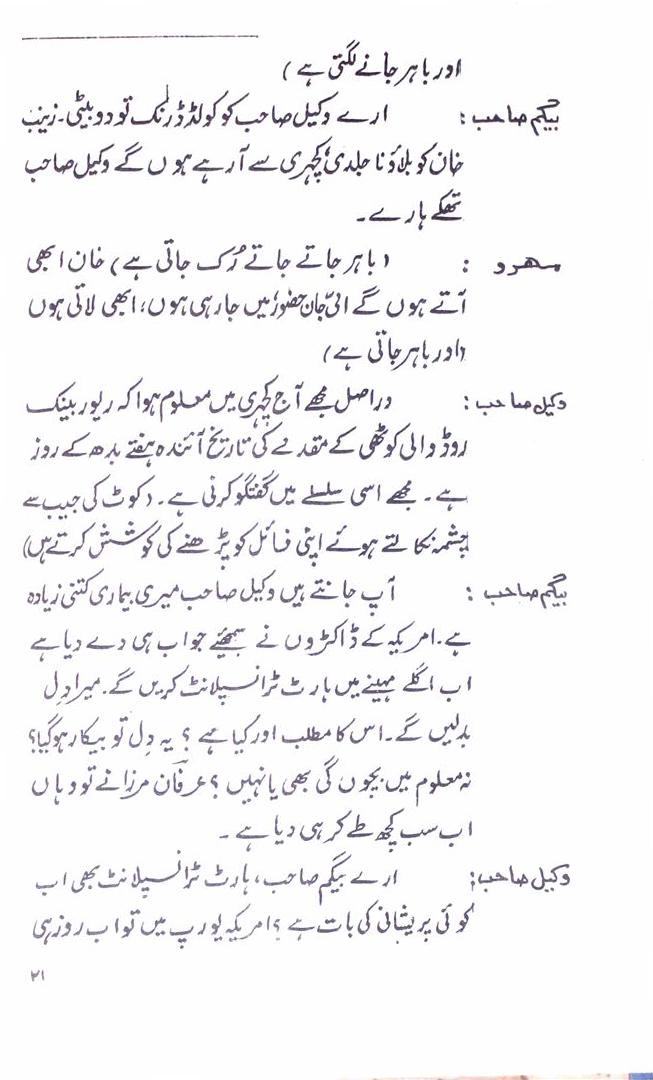 اور باہر جانے لگتی ہے )
بیگم صاحب : ارے وکیل صاحب کو کولڈ ڈرنک تو دو بیٹی۔ زینب
خان کو بلاؤ نا جلدی، کچہری سے آرہے ہوں گے وکیل صاحب
تھکے ہارے۔
مہرو : ( باہر جاتے جاتے رُک جاتی ہے ) خان ابھی
آتے ہوں گے امّی جان حضور، میں جارہی ہوں، ابھی لاتی ہوں
(اور باہر جاتی ہے)
وکیل صاحب : دراصل مجھے آج کچہری میں معلوم ہوا کہ ریور بینک
روڈ والی کوٹھی کے مقدمے کی تاریخ آئندہ ہفتے بدھ کے روز
ہے۔ مجھے اسی سلسلے میں گفتگو کرنی ہے۔ (کوٹ کی جیب سے
چشمہ نکالتے ہوئے اپنی فائل کو پڑھنے کی کوشش کرتے ہیں)
بیگم صاحب : آپ جانتے ہیں وکیل صاحب میری بیماری کتنی زیادہ
ہے۔ امریکہ کے ڈاکٹروں نے سمجھئے جواب ہی دے دیا ہے
اب اگلے مہینے میں ہارٹ ٹرانسپلانٹ کریں گے۔ میرا دِل
بدلیں گے۔ اس کا مطلب اور کیا ہے ؟ یہ دِل تو بیکار ہوگیا؟
نہ معلوم میں بچوں گی بھی یا نہیں ؟ عرفان مرزا نے تو وہاں
اب سب کچھ طے کر ہی دیا ہے ۔
وکیل صاحب : ارے بیگم صاحب، ہارٹ ٹرانسپلانٹ بھی اب
کوئی پریشانی کی بات ہے ؟ امریکہ یورپ میں تو اب روز ہی
۲۱